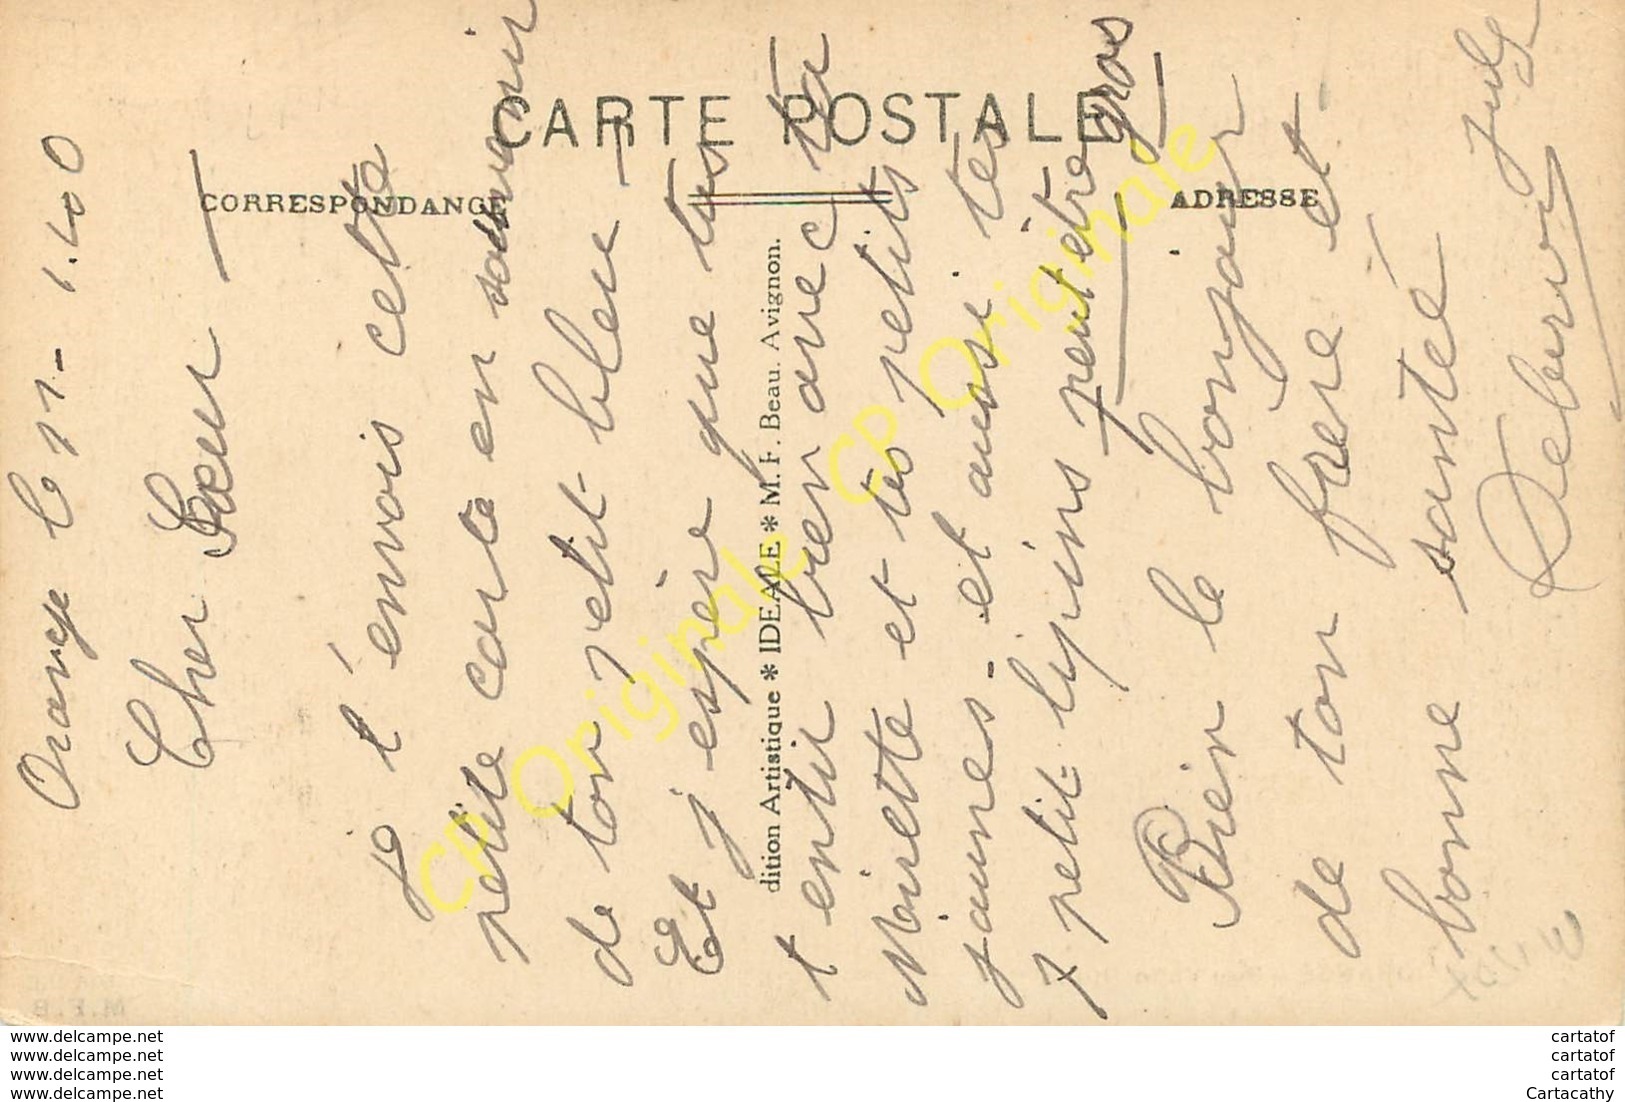 CARTE POSTALE
CORRESPONDANCE
ADRESSE
dition Artistique * IDEALE * M. F. Beau. Avignon.
Orange le 11-1.40
Cher Sœur
Je t'envois cette
petite carte en souvenir
de ton petit bleu
Et j espère que tus
t entir bien avec ta
Mirette et tes petits
jaunes - et aussi tes
7 petit lypins peut être gros
Bien le bonjour
de ton frere et
bonne santée
CP Originale CP Originale CP Originale
M.F.B
www.delcampe.net
www.delcampe.net
www.delcampe.net
www.delcampe.net
cartatof
cartatof
cartatof
Cartacathy